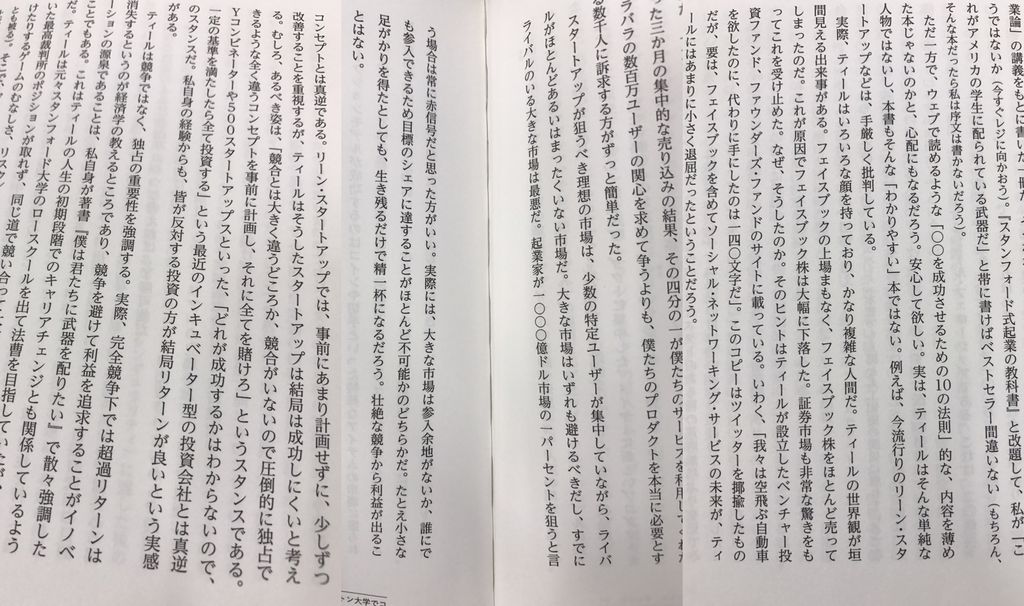 業論」の講義をもとに書いた一冊
うではないか（今すぐレジに向かおう）。『スタンフォード式起業の教科書』と改題して、私が「こ
れがアメリカの学生に配られている武器だ」と帯に書けばベストセラー間違いない（もちろん、
そんな本だったら私は序文は書かないだろう）。
ただ一方で、ウェブで読めるような「〇〇を成功させるための10の法則」的な、内容を薄め
た本じゃないのかと、心配にもなるだろう。安心して欲しい。実は、ティールはそんな単純な
人物ではないし、本書もそんな「わかりやすい」本ではない。例えば、今流行りのリーン・スタ
ートアップなどは、手厳しく批判している。
実際、ティールはいろいろな顔を持っており、かなり複雑な人間だ。ティールの世界観が垣
間見える出来事がある。フェイスブックの上場まもなく、フェイスブック株をほとんど売って
しまったのだ。これが原因でフェイスブック株は大幅に下落した。証券市場も非常な驚きをも
ってこれを受け止めた。なぜ、そうしたのか。そのヒントはティールが設立したベンチャー投
資ファンド、ファウンダーズ・ファンドのサイトに載っている。いわく、「我々は空飛ぶ自動車
を欲したのに、代わりに手にしたのは一四〇文字だ」。このコピーはツイッターを揶揄したもの
だが、要は、フェイスブックを含めてソーシャル・ネットワーキング・サービスの未来が、ティ
ールにはあまりに小さく退屈だったということだろう。
った三か月の集中的な売り込みの結果、その四分の一が僕たちのサービスを利用してくれた
ラバラの数百万ユーザーの関心を求めて争うよりも、僕たちのプロダクトを本当に必要とす
る数千人に訴求する方がずっと簡単だった。
スタートアップが狙うべき理想の市場は、少数の特定ユーザーが集中していながら、ライバ
ルがほとんどあるいはまったくいない市場だ。大きな市場はいずれも避けるべきだし、すでに
ライバルのいる大きな市場は最悪だ。起業家が一〇〇〇億ドル市場の一パーセントを狙うと言
う場合は常に赤信号だと思った方がいい。実際には、大きな市場は参入余地がないか、誰にで
も参入できるため目標のシェアに達することがほとんど不可能かのどちらかだ。たとえ小さな
足がかりを得たとしても、生き残るだけで精一杯になるだろう。壮絶な競争から利益が出るこ
とはない。
トン大学でコ
コンセプトとは真逆である。リーン・スタートアップでは、事前にあまり計画せずに、少しずつ
改善することを重視するが、ティールはそうしたスタートアップは結局は成功しにくいと考え
る。むしろ、あるべき姿は、「競合とは大きく違うどころか、競合がいないので圧倒的に独占で
きるような全く違うコンセプトを事前に計画し、それに全てを賭けろ」というスタンスである。
Yコンビネーターや500スタートアップスといった、「どれが成功するかはわからないので、
一定の基準を満たしたら全て投資する」という最近のインキュベーター型の投資会社とは真逆
のスタンスだ。私自身の経験からも、皆が反対する投資の方が結局リターンが良いという実感
がある。
ティールは競争ではなく、独占の重要性を強調する。実際、完全競争下では超過リターンは
消失するというのが経済学の教えるところであり、競争を避けて利益を追求することがイノベ
ーションの源泉であることは、私自身が著書『僕は君たちに武器を配りたい』で散々強調した
ことでもある。これはティールの人生の初期段階でのキャリアチェンジとも関係しているよう
だ。ティールは元々スタンフォード大学のロースクールを出て法曹を目指していたが、
いた最高裁判所のポジションが取れず、同じ道で競い合って
けたりするゲームのむなしさ、リスク